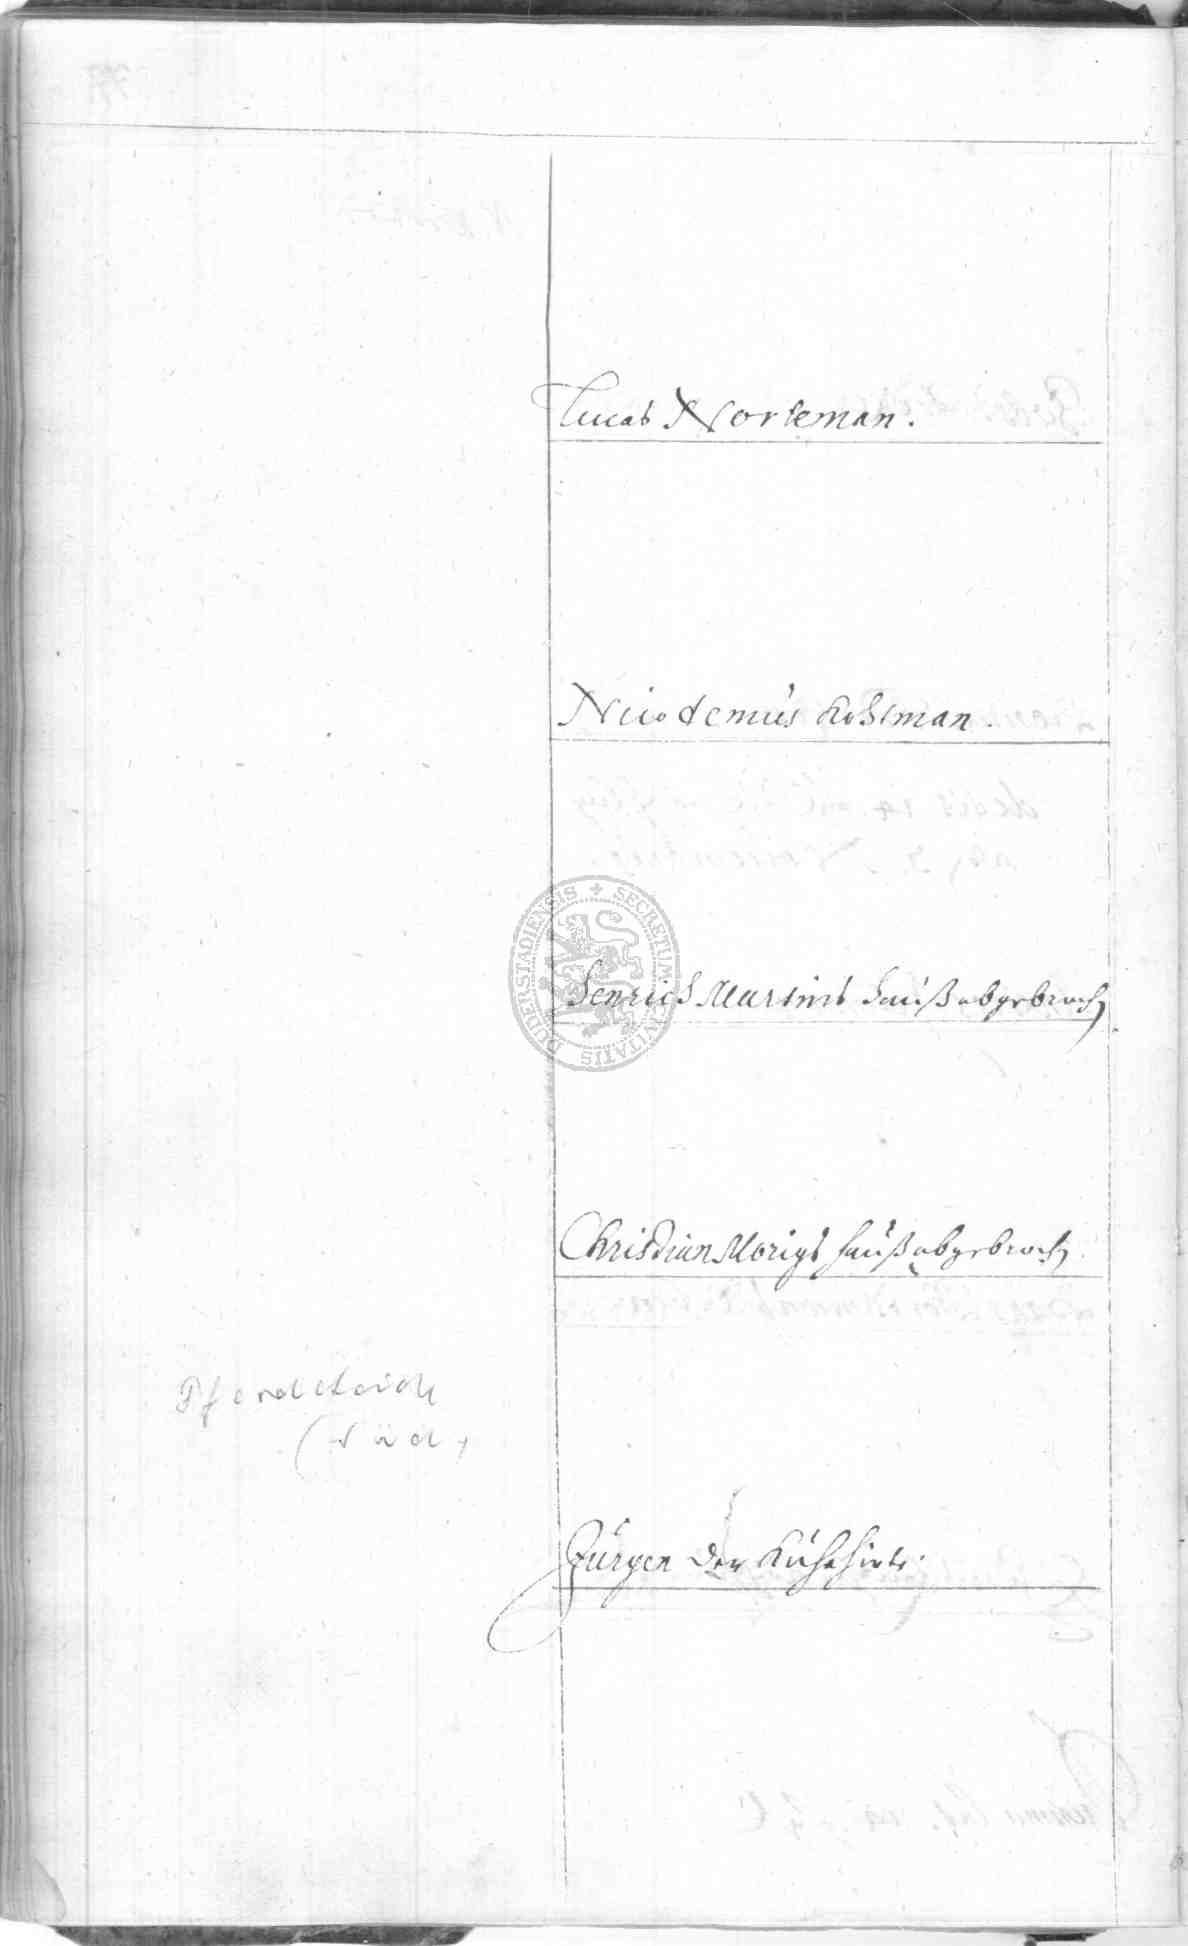 Lucas Norteman.
Nicodemus Kohlman.
SECRETUM CIVITATIS DUDERSTADIENSIS
Henrich Martins Hauß abgebroch
Christian Morigs hauß abgebroch
Pferdeteich
(Süd)
Jürgen der Kühehirte.